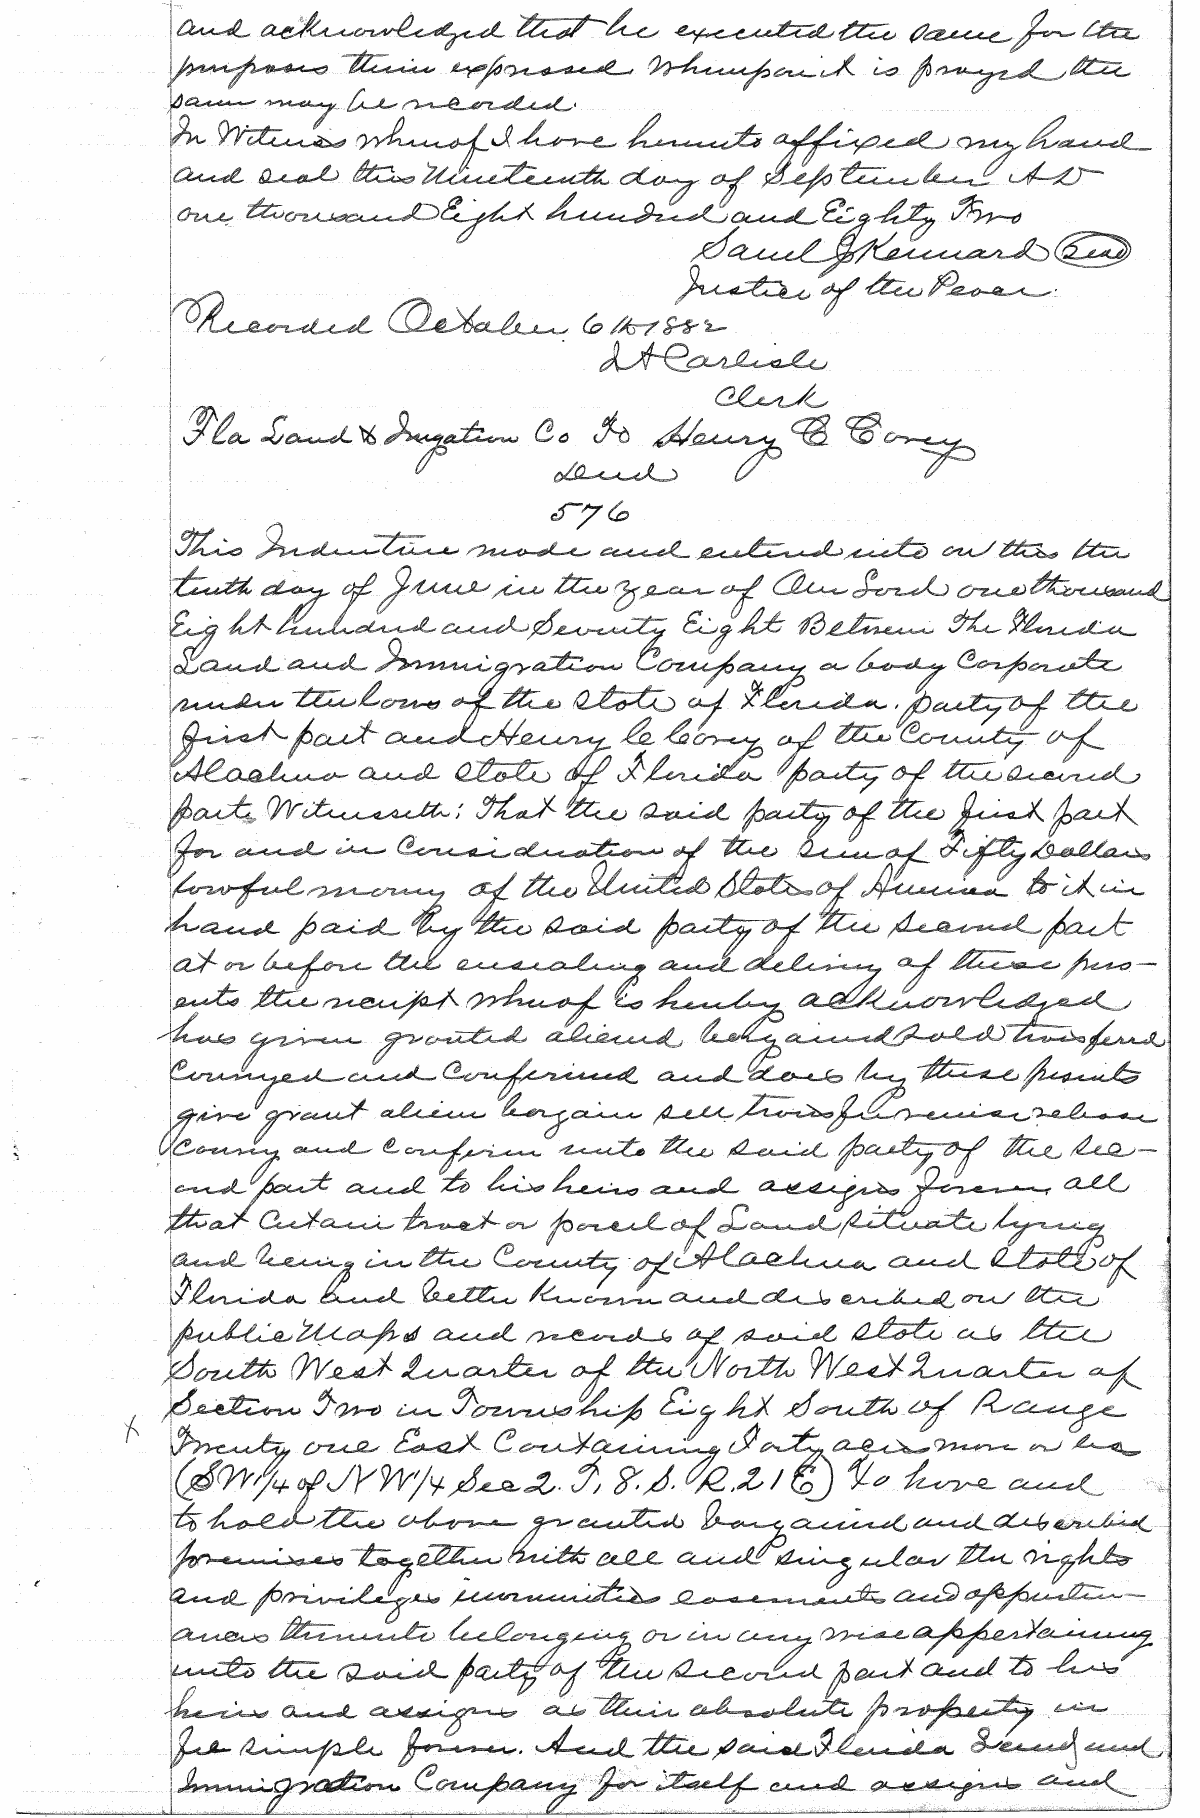 and acknowledged that he executed the same for the
purposes therein expressed Whereupon it is prayed the
same may be recorded.
In Witness whereof I have hereunto affixed my hand
and seal this Nineteenth day of September AD
one thousand Eight hundred and Eighty Two
Saml J Kennard Seal
Justice of the Peace.
Recorded October 6th 1882
J A Carlisle
Clerk
Fla Land & Imgation Co To Henry C Corey
Deed
576
This Indenture made and entered into on this the
tenth day of June in the year of Our Lord one thousand
Eight hundred and Seventy Eight Between The Florida
Land and Immigration Company a body Corporate
under the laws of the State of Florida. party of the
first part and Henry C Corey of the County of
Alachua and State of Florida party of the second
part. Witnesseth: That the said party of the first part
for and in Consideration of the sum of Fifty Dollars
lawful money of the United States of America to it in
hand paid by the said party of the second part
at or before the ensealing and delivery of these pres-
ents the receipt whereof is hereby acknowledged
has given granted aliened bargained sold transferred
Conveyed and Confirmed and does by these presents
give grant alien bargain sell transfer remise release
convey and Confirm unto the said party of the sec-
ond part and to his heirs and assigns forever all
that Certain tract or parcel of Land situate lying
and being in the County of Alachua and State of
Florida and better Known and described on the
public Maps and records of said State as the
South West Quarter of the North West Quarter of
Section Two in Township Eight South of Range
X Twenty one East Containing Forty acres more or less
(SW 1/4 of NW 1/4 Sec 2. T. 8. S. R. 21 E) To have and
to hold the above granted bargained and described
premises together with all and singular the rights
and privileges immunities easements and appurten-
ances thereunto belonging or in any wise appertaining
unto the said party of the second part and to his
heirs and assigns as their absolute property in
fee simple forever. And the said Florida Land and
Immigration Company for itself and assigns and